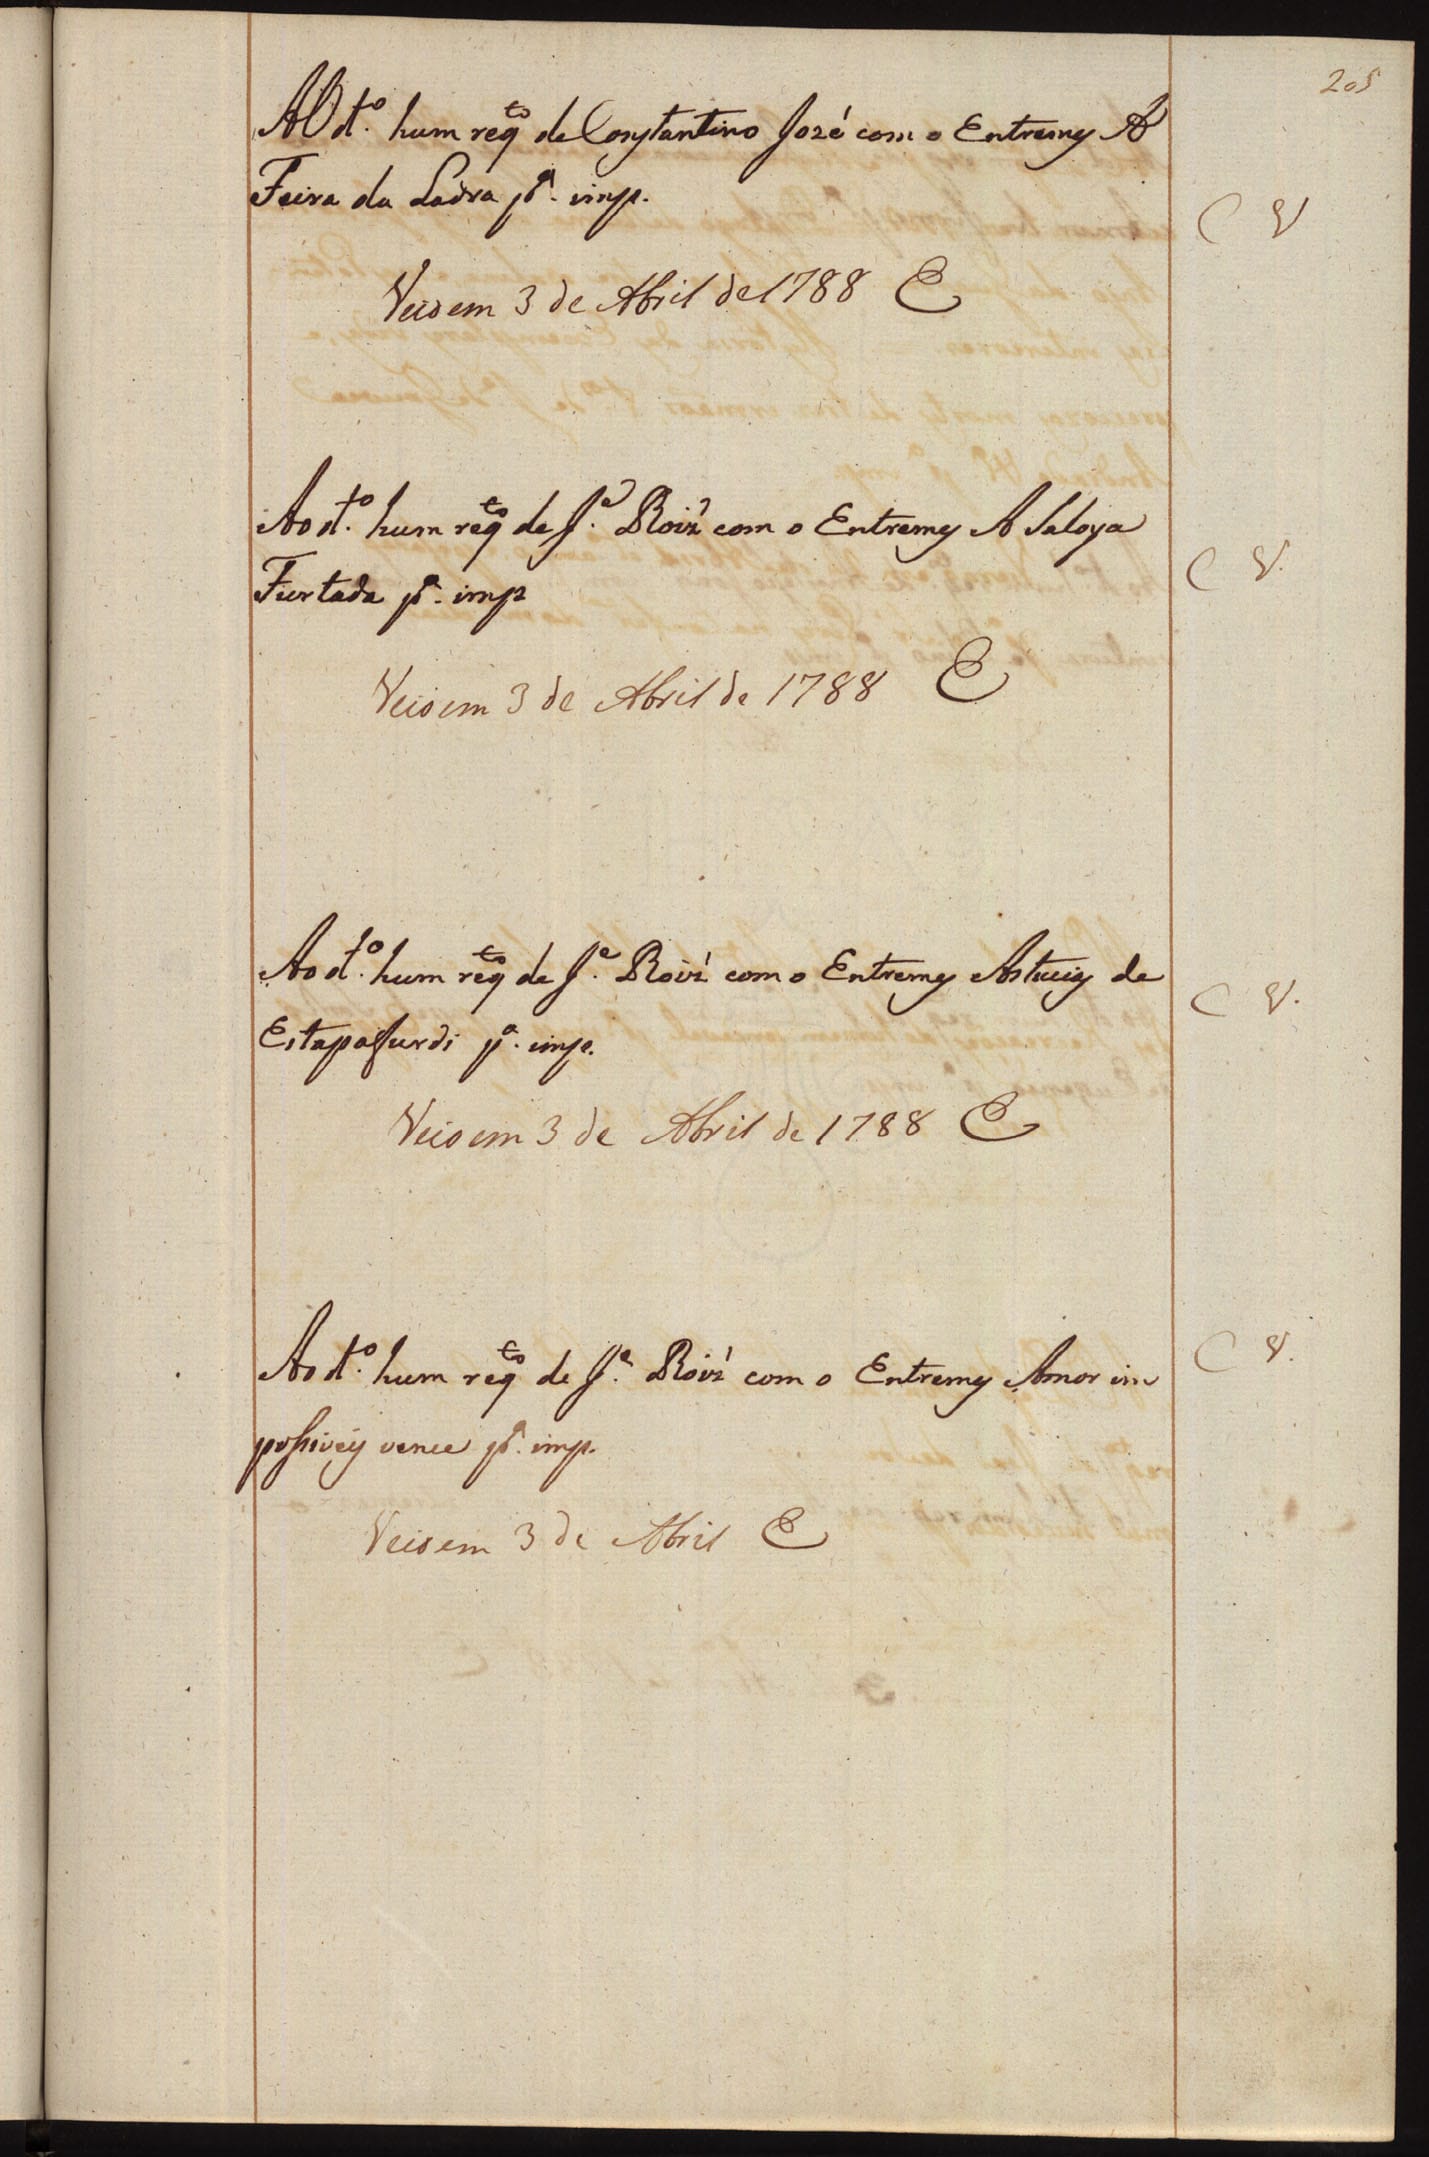 205
AO d.º hum reqto de Constantino Jozé com o Entremes A
Feira da Ladra pª. imp.
C V
Veio em 3 de Abril de 1788 C
Ao d.º hum reqto de J.e Roiz com o Entremes A Saloya
Furtada pª. imp
C V.
Veio em 3 de Abril de 1788 C
Ao d.º hum reqto de J.e Roiz com o Entremes Astucias de
Estapafurdi pª. imp.
C V.
Veio em 3 de Abril de 1788 C
Ao d.º hum reqto de J.e Roiz com o Entremes Amor im
possiveis vence pª. imp.
C V.
Veio em 3 de Abril C